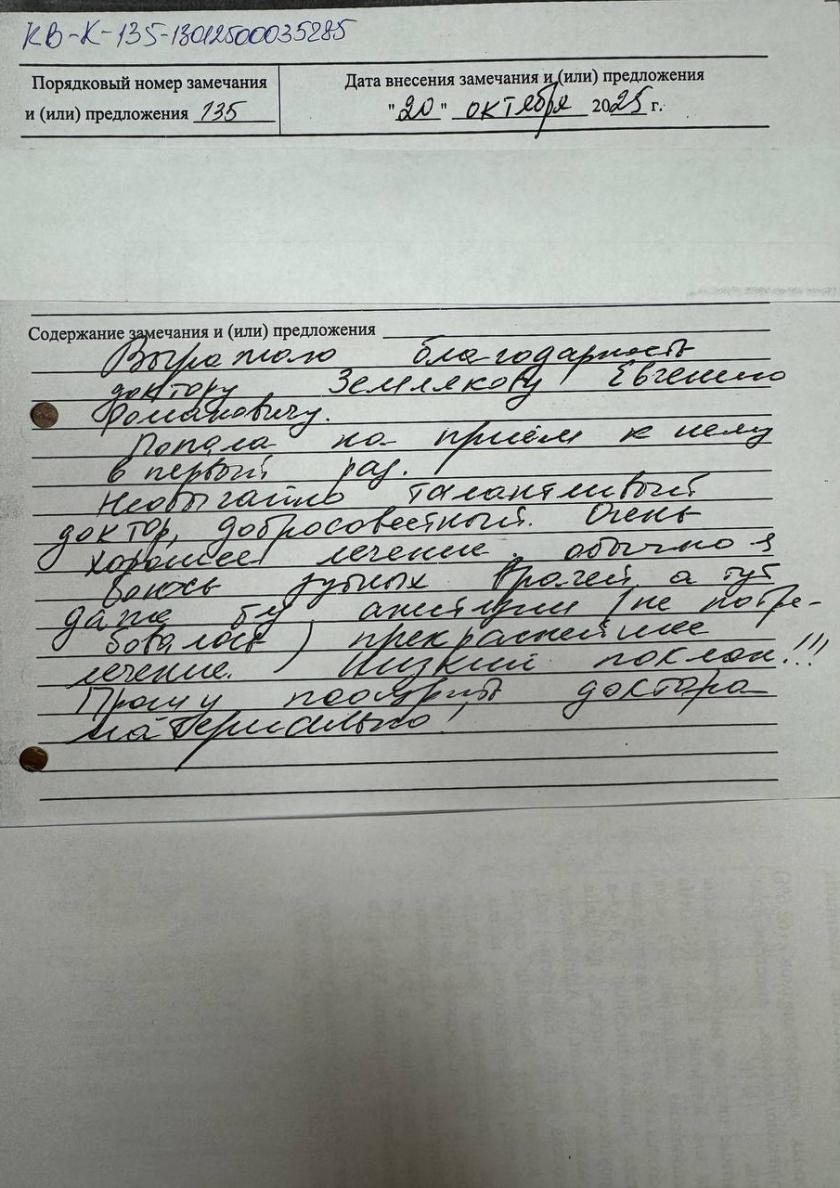 КВ-К-135-13012500035285
Порядковый номер замечания
и (или) предложения 135
Дата внесения замечания и (или) предложения
"20" октября 2025 г.
Содержание замечания и (или) предложения
Выражаю благодарность
доктору Землякову Евгению
Романовичу.
Попала на приём к нему
в первый раз.
Необычайно талантливый
доктор, добросовестный. Очень
хорошее лечение. обычно я
боюсь зубных врачей, а тут
даже без анестезии (не потре-
бовалось) прекраснейшее
лечение. Низкий поклон!!!
Прошу поощрить доктора
материально!